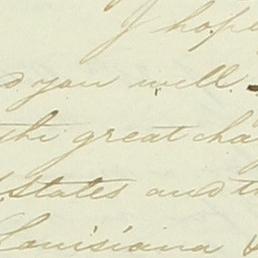 I hope
you will
the great cha
States and th
Louisiana &